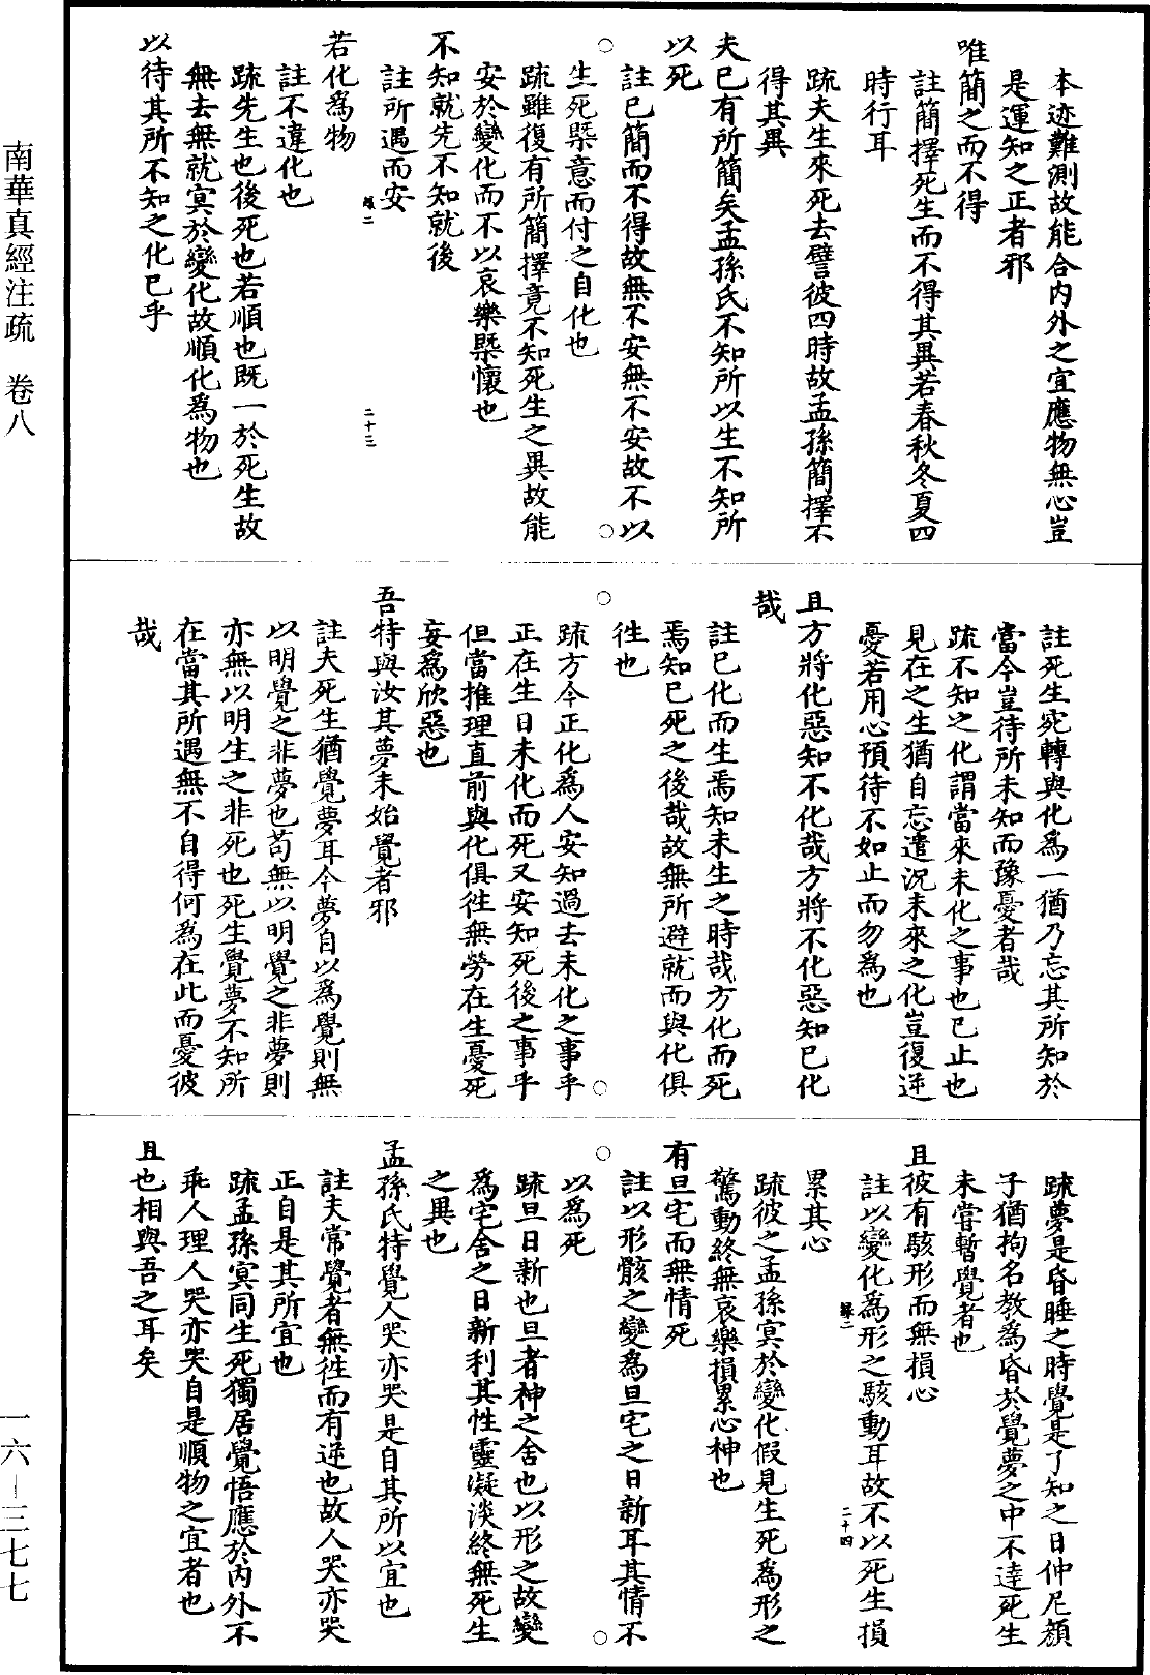 本迹難測故能合内外之宜應物無心豈
是運知之正者邪
唯簡之而不得
註簡擇死生而不得其異若春秋冬夏四
時行耳
疏夫生來死去譬彼四時故孟孫簡擇不
得其異
夫已有所簡矣孟孫氏不知所以生不知所
以死
註已簡而不得故無不安無不安故不以
生死槩意而付之自化也
疏雖復有所簡擇竟不知死生之異故能
安於變化而不以哀樂槩懷也
不知就先不知就後
註所遇而安
二十三
若化爲物
註不違化也
疏先生也後死也若順也既一於死生故
無去無就冥於變化故順化爲物也
以待其所不知之化已乎
註死生宛轉與化爲一猶乃忘其所知於
當今豈待所未知而豫憂者哉
疏不知之化謂當來未化之事也已止也
見在之生猶自忘遣況未來之化豈復逆
憂若用心預待不如止而勿爲也
且方將化惡知不化哉方將不化惡知已化
哉
註已化而生焉知未生之時哉方化而死
焉知已死之後哉故無所避就而與化俱
徃也
疏方今正化爲人安知過去未化之事乎
正在生日未化而死又安知死後之事乎
但當推理直前與化俱徃無勞在生憂死
妄爲欣惡也
吾特與汝其夢未始覺者邪
註夫死生猶覺夢耳今夢自以爲覺則無
以明覺之非夢也苟無以明覺之非夢則
亦無以明生之非死也死生覺夢不知所
在當其所遇無不自得何爲在此而憂彼
哉
疏夢是昏睡之時覺是了知之日仲尼顏
子猶拘名教爲昏於覺夢之中不達死生
未嘗暫覺者也
且彼有駭形而無損心
註以變化爲形之駭動耳故不以死生損
二十四
累其心
疏彼之孟孫冥於變化假見生死爲形之
驚動終無哀樂損累心神也
有旦宅而無情死
註以形骸之變爲旦宅之日新耳其情不
以爲死
疏旦日新也旦者神之舍也以形之故變
爲宅舍之日新利其性靈凝淡終無死生
之異也
孟孫氏特覺人哭亦哭是自其所以宜也
註夫常覺者無徃而有逆也故人哭亦哭
正自是其所宜也
疏孟孫冥同生死獨居覺悟應於内外不
乖人理人哭亦哭自是順物之宜者也
且也相與吾之耳矣
南華真經注疏 卷八
一六—三七七